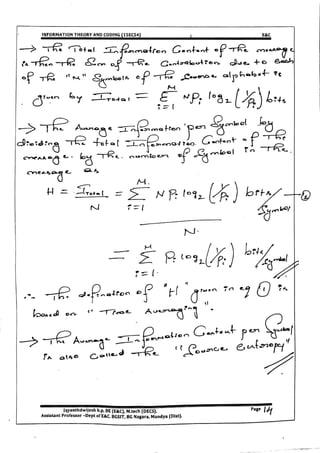 INFORMATION THEORY AND CODING (15EC54) E&C
→ The Total Information Content of The message
is Then The Sum of The Contribution due to Each
of The "M" Symbols of The Source alphabet is
given by I_Total = Σ_{i=1}^{M} N P_i log_2 (1/P_i) bits
→ The Average Information per Symbol by
dividing The total Information Content of The
message by The number of Symbol in The
message as
H = I_Total / N = Σ_{i=1}^{M} N P_i log_2 (1/P_i) bits / Symbol —①
N
= Σ_{i=1}^{M} P_i log_2 (1/P_i) bits/Symbol
∴ The defination of "H" given in eq ① is
based on "Time Averaging".
→ The Average Information Content per Symbol
is also Called The "Source entropy"
Jayanthdwijesh h.p, BE (E&C), M.tech (DECS). Page 14
Assistant Professor -Dept of E&C. BGSIT, BG Nagara, Mandya (Dist).